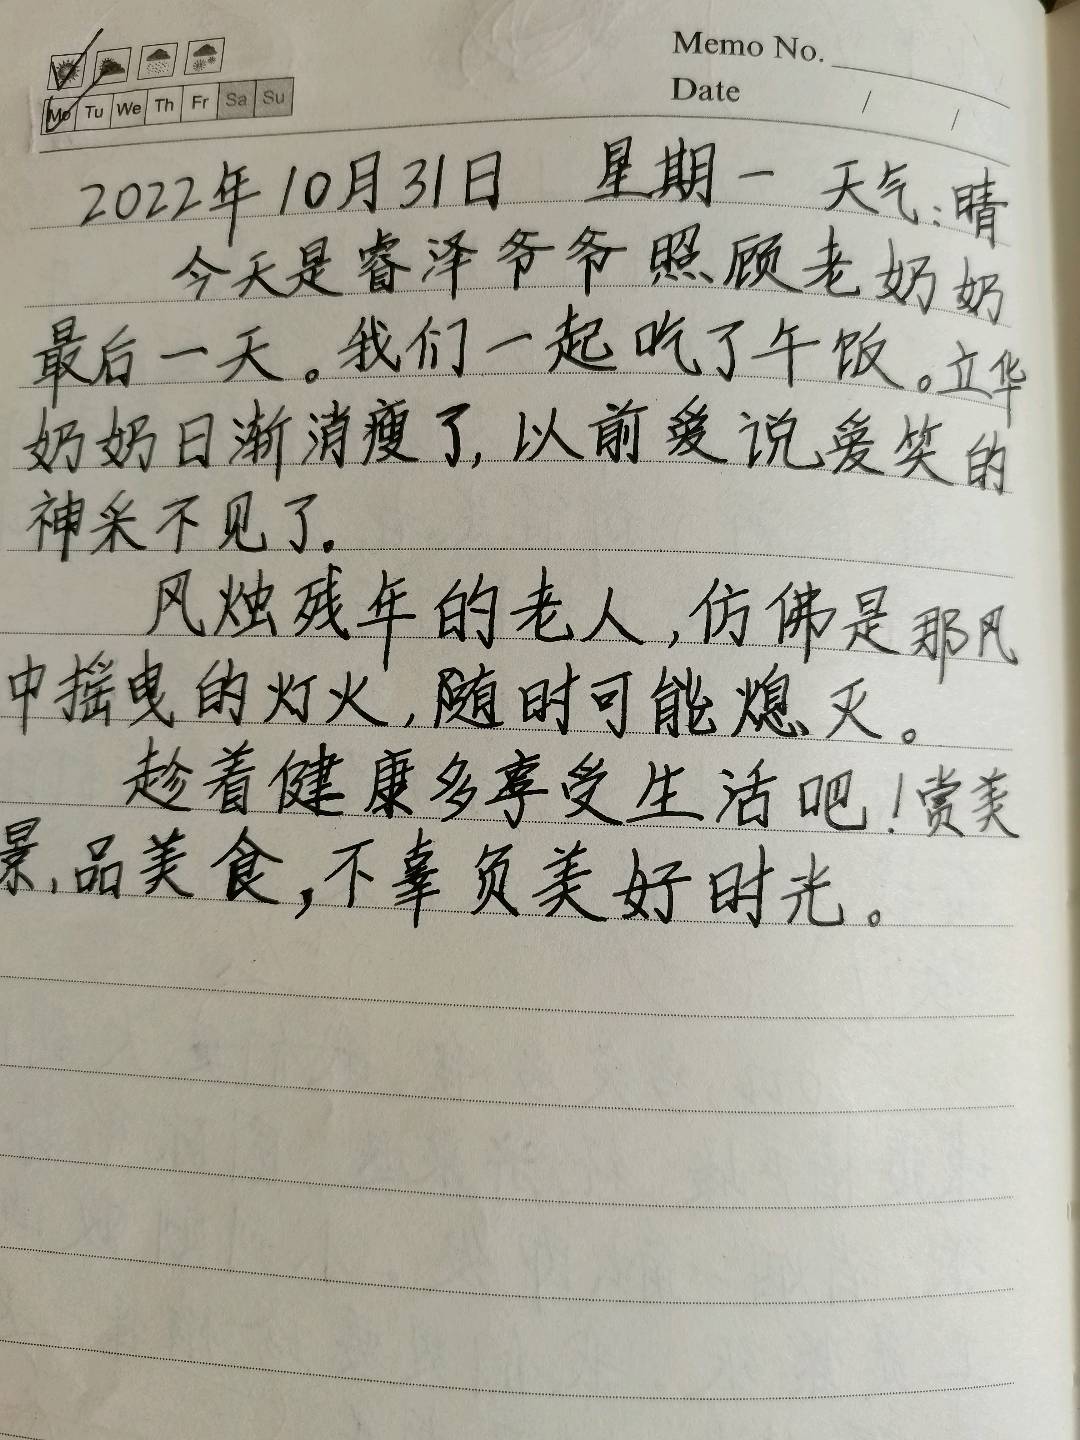 Memo No.
Mo Tu We Th Fr Sa Su
Date / /
2022年10月31日 星期一 天气:晴
今天是睿泽爷爷照顾老奶奶
最后一天。我们一起吃了午饭。立华
奶奶日渐消瘦了,以前爱说爱笑的
神采不见了.
风烛残年的老人,仿佛是那风
中摇曳的灯火,随时可能熄灭。
趁着健康多享受生活吧!赏美
景,品美食,不辜负美好时光。